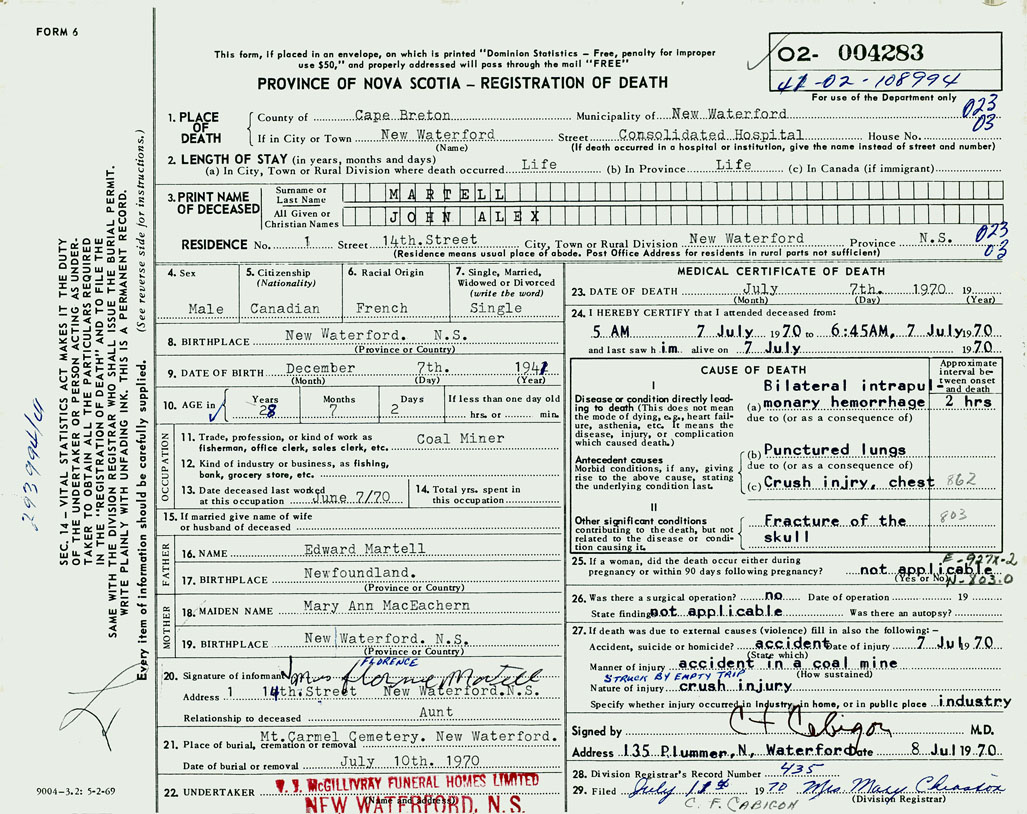 FORM 6
This form, if placed in an envelope, on which is printed "Dominion Statistics – Free, penalty for improper
use $50," and properly addressed will pass through the mail "FREE"
PROVINCE OF NOVA SCOTIA – REGISTRATION OF DEATH
02- 004283
41-02-108994
For use of the Department only
1. PLACE OF DEATH
County of Cape Breton Municipality of New Waterford 023
If in City or Town New Waterford Street Consolidated Hospital House No. 03
(Name) (If death occurred in a hospital or institution, give the name instead of street and number)
2. LENGTH OF STAY (in years, months and days)
(a) In City, Town or Rural Division where death occurred Life (b) In Province Life (c) In Canada (if immigrant)
3. PRINT NAME OF DECEASED
Surname or Last Name MARTELL
All Given or Christian Names JOHN ALEX
RESIDENCE No. 1 Street 14th.Street City, Town or Rural Division New Waterford Province N.S. 023
(Residence means usual place of abode. Post Office Address for residents in rural parts not sufficient) 03
4. Sex
Male
5. Citizenship
(Nationality)
Canadian
6. Racial Origin
French
7. Single, Married,
Widowed or Divorced
(write the word)
Single
8. BIRTHPLACE New Waterford. N.S.
(Province or Country)
9. DATE OF BIRTH December 7th. 1941
(Month) (Day) (Year)
10. AGE in Years Months Days If less than one day old
28 7 2 hrs. or min.
OCCUPATION
11. Trade, profession, or kind of work as Coal Miner
fisherman, office clerk, sales clerk, etc.
12. Kind of industry or business, as fishing,
bank, grocery store, etc.
13. Date deceased last worked
at this occupation June 7/70
14. Total yrs. spent in
this occupation
15. If married give name of wife
or husband of deceased
FATHER
16. NAME Edward Martell
17. BIRTHPLACE Newfoundland.
(Province or Country)
MOTHER
18. MAIDEN NAME Mary Ann MacEachern
19. BIRTHPLACE New Waterford. N.S.
(Province or Country)
FLORENCE
20. Signature of informant Mrs Florence Martell
Address 1 14th.Street New Waterford.N.S.
Relationship to deceased Aunt
21. Place of burial, cremation or removal Mt.Carmel Cemetery. New Waterford.
Date of burial or removal July 10th. 1970
22. UNDERTAKER McGILLIVRAY FUNERAL HOMES LIMITED
(Name and address)
NEW WATERFORD, N. S.
MEDICAL CERTIFICATE OF DEATH
23. DATE OF DEATH July 7th. 1970 19
(Month) (Day) (Year)
24. I HEREBY CERTIFY that I attended deceased from:
5 AM 7 July 1970 to 6:45AM, 7 July 1970
and last saw him alive on 7 July 1970
CAUSE OF DEATH
Approximate
interval be-
tween onset
and death
I
Disease or condition directly lead-
ing to death (This does not mean
the mode of dying, e.g., heart fail-
ure, asthenia, etc. It means the
disease, injury, or complication
which caused death.)
Bilateral intrapul-
(a) monary hemorrhage 2 hrs
due to (or as a consequence of)
Antecedent causes
Morbid conditions, if any, giving
rise to the above cause, stating
the underlying condition last.
(b) Punctured lungs
due to (or as a consequence of)
(c) Crush injry, chest 862
II
Other significant conditions
contributing to the death, but not
related to the disease or condi-
tion causing it.
Fracture of the 803
skull
25. If a woman, did the death occur either during
pregnancy or within 90 days following pregnancy? not applicable
(Yes or No)
E-927X-2
N-803.0
26. Was there a surgical operation? no Date of operation 19
State findings not applicable Was there an autopsy?
27. If death was due to external causes (violence) fill in also the following: –
Accident, suicide or homicide? accident Date of injury 7 Jul 1970
(State which)
Manner of injury accident in a coal mine
STRUCK BY EMPTY TRIP (How sustained)
Nature of injury crush injury
Specify whether injury occurred in industry, in home, or in public place industry
Signed by C F Cabigon M.D.
Address 135 Plummer,N, Waterford Date 8 Jul 1970
28. Division Registrar's Record Number 435
29. Filed July 1970 Mrs Mary Chiasson
C. F. CABIGON (Division Registrar)
SEC. 14 – VITAL STATISTICS ACT MAKES IT THE DUTY
OF THE UNDERTAKER OR PERSON ACTING AS UNDER-
TAKER TO OBTAIN ALL THE PARTICULARS REQUIRED
IN THE "REGISTRATION OF DEATH" AND TO FILE THE
SAME WITH THE DIVISION REGISTRAR WHO SHALL ISSUE THE BURIAL PERMIT.
WRITE PLAINLY WITH UNFADING INK. THIS IS A PERMANENT RECORD.
Every item of information should be carefully supplied. (See reverse side for instructions.)
9004-3.2: 5-2-69